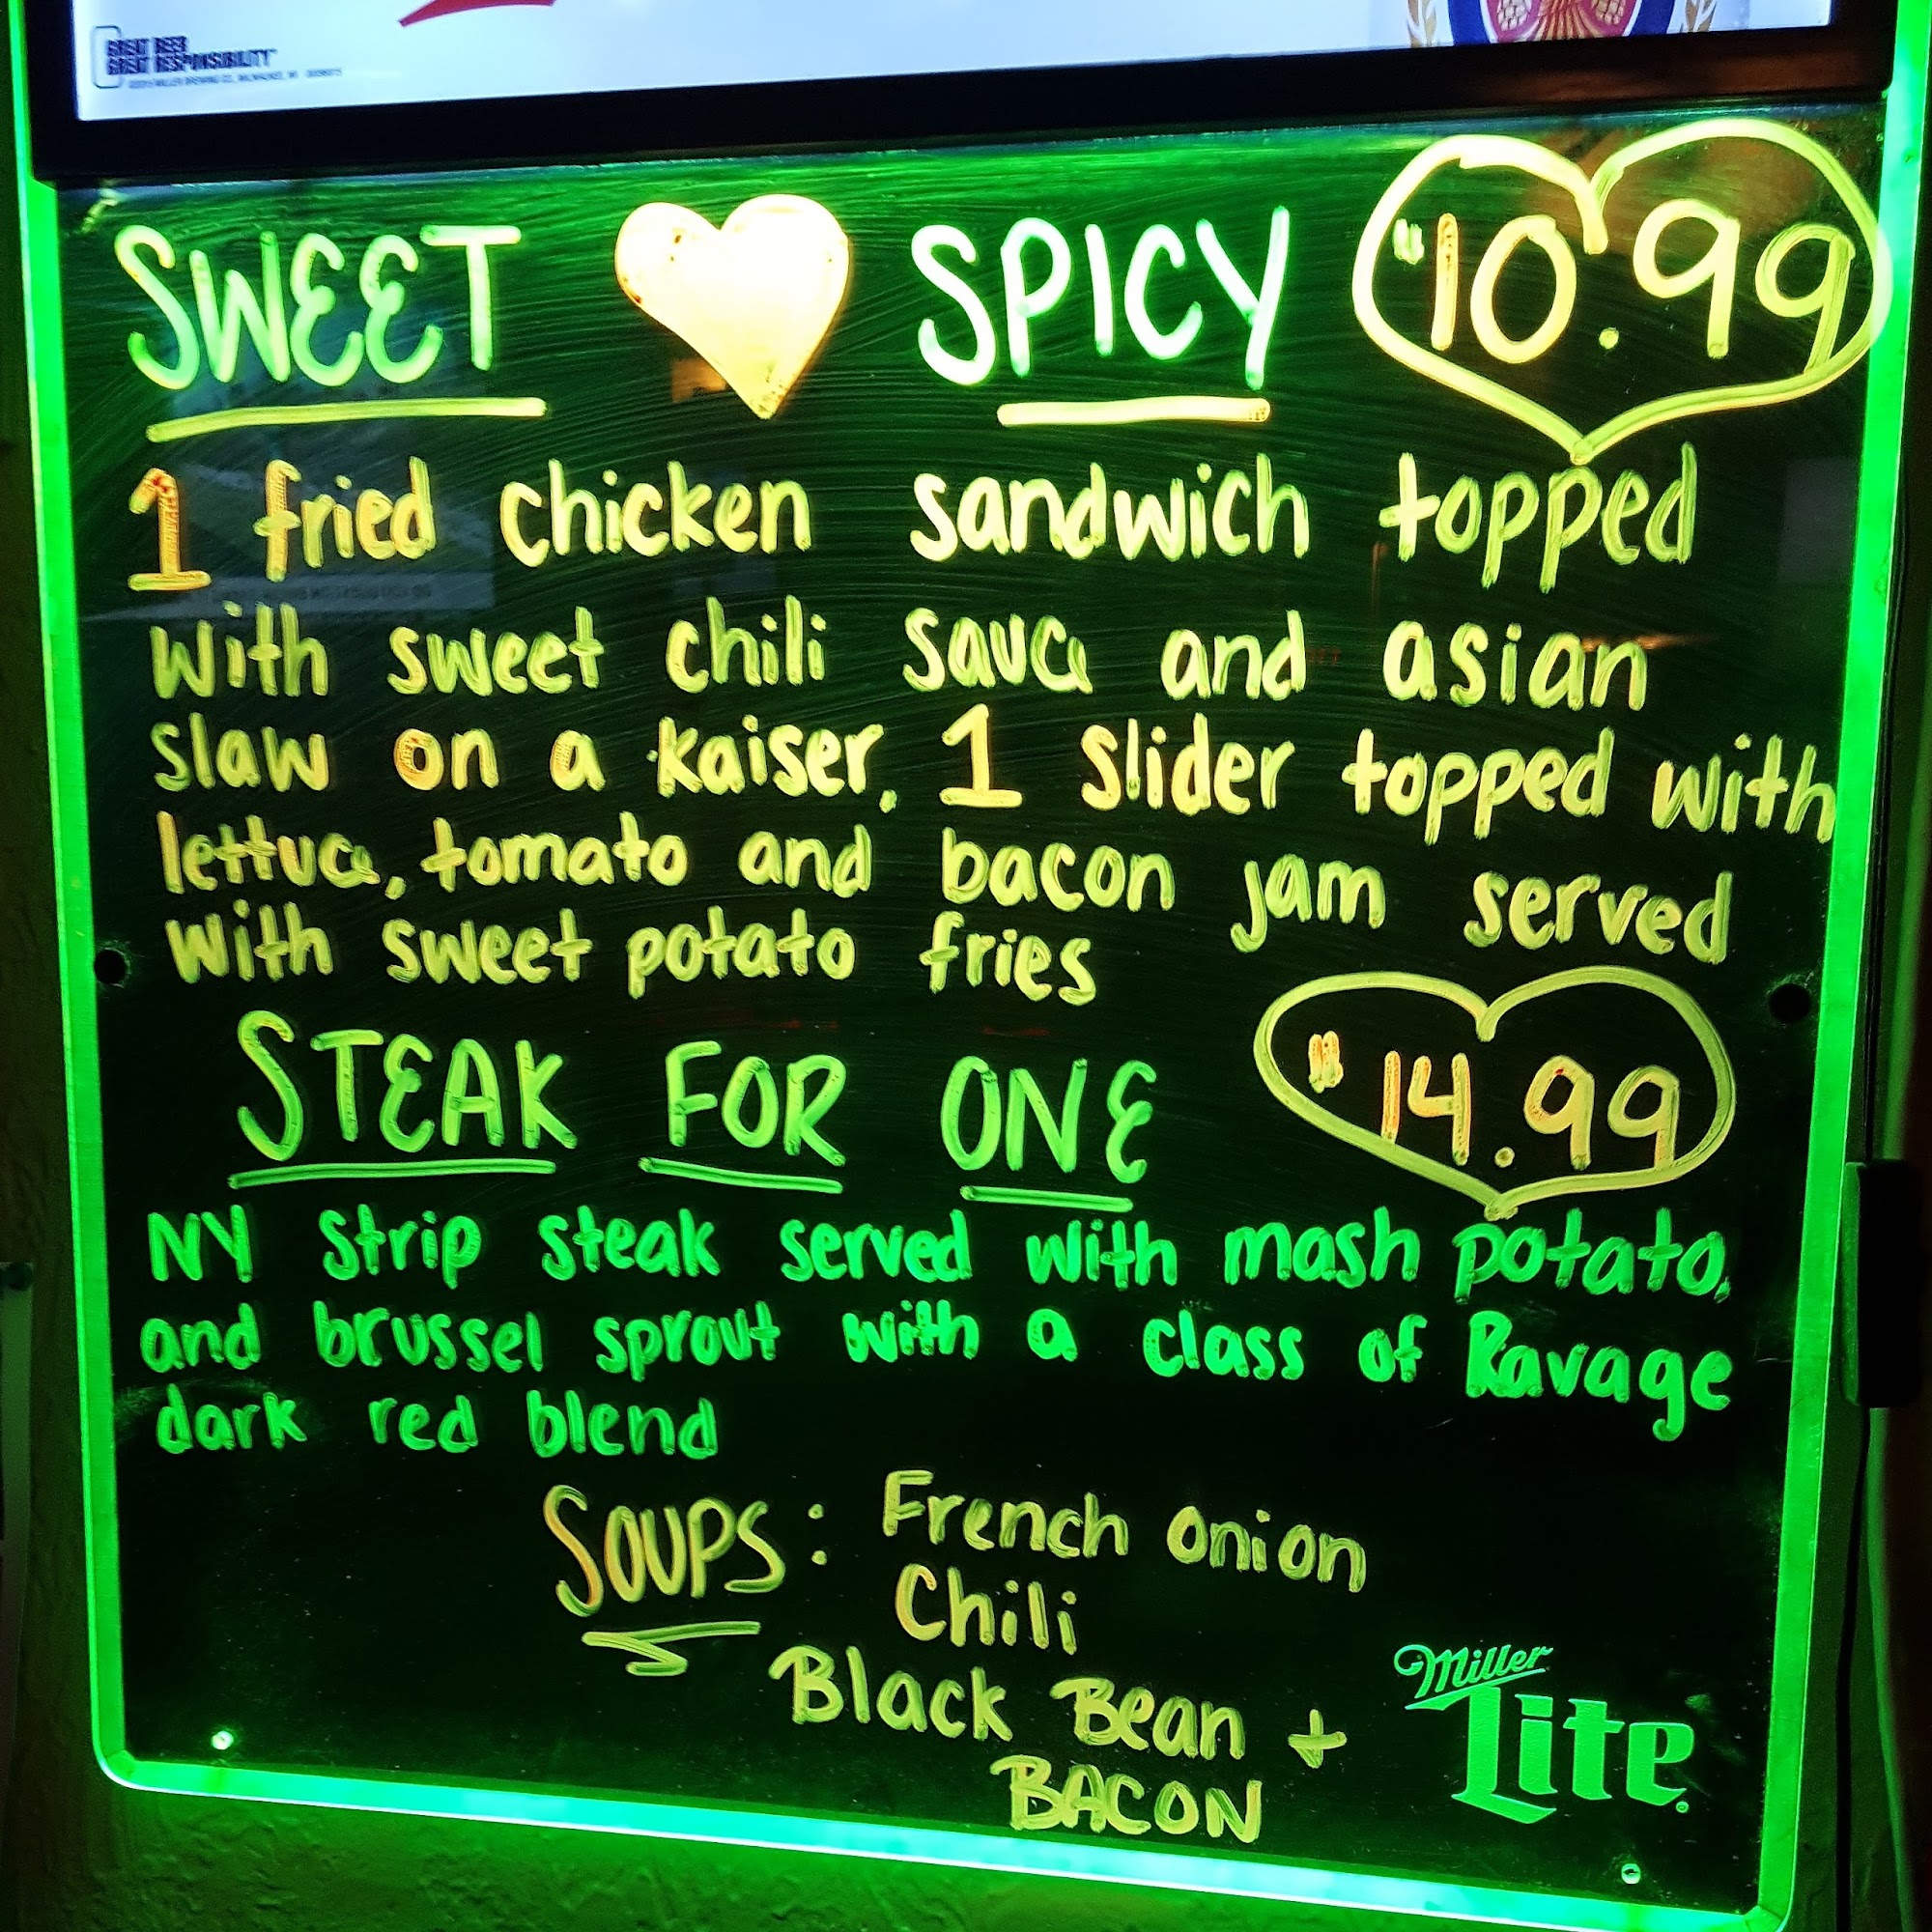 GREAT BEER
GREAT RESPONSIBILITY
SWEET SPICY $10.99
1 fried chicken sandwich topped
with sweet chili sauce and asian
slaw on a kaiser, 1 slider topped with
lettuce, tomato and bacon jam served
with sweet potato fries
STEAK FOR ONE $14.99
NY Strip steak served with mash potato,
and brussel sprout with a class of Ravage
dark red blend
SOUPS: French Onion
Chili
Black Bean +
BACON
Miller
Lite